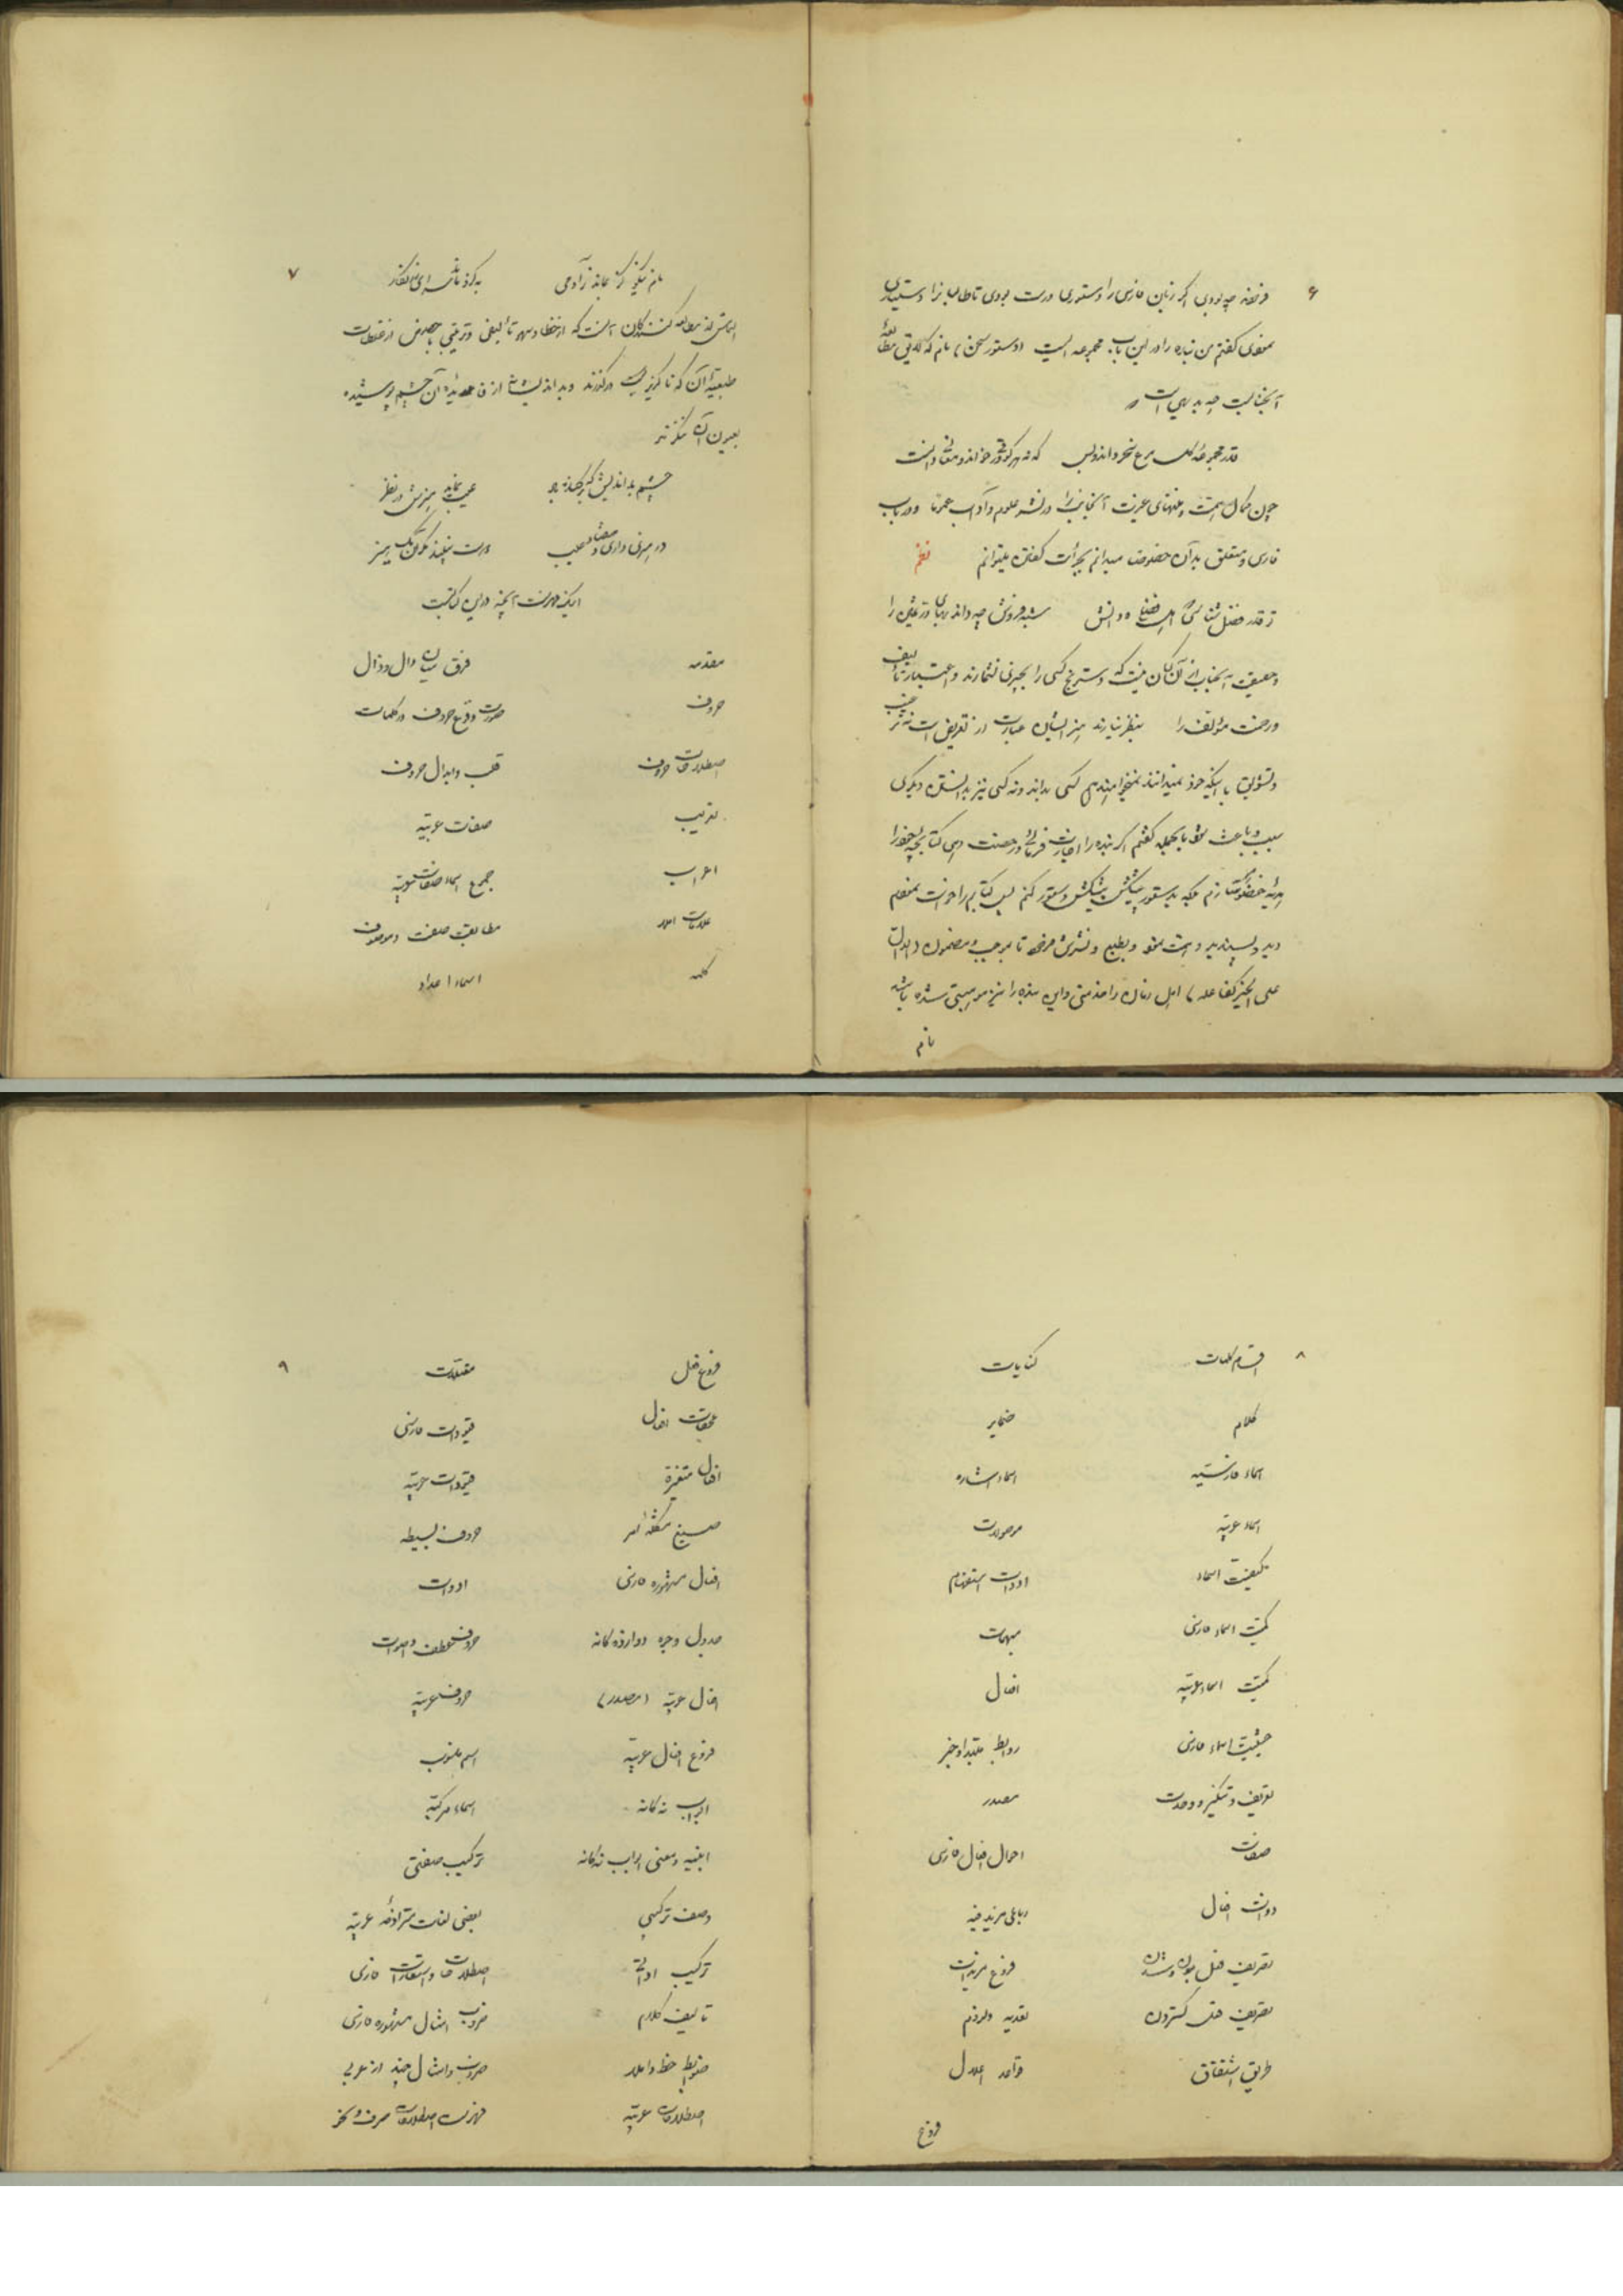 ۶
فرمود چه بودی اگر زبان فارسی را دستوری درست بودی تا طالبانرا دستیاری
نمودی گفتم من بنده را در این باب مجموعه ایست (دستور سخن) نام که لایق مطالعهٔ
آنجنابست چه بدیهی است
قدر مجموعه گل مرغ سحر داند و بس که نه هر کو ورقی خواند معانی دانست
چون کمال همت و منتهای عزیمت آنجنابرا در نشر علوم و آداب عموما و در باب
فارسی و متعلق بدآن خصوصا میدانم بجرأت گفتن میتوانم نظم
ز قدر فضل شناسی اهل فضل و دانش شبه فروش چه داند بهای در ثمین را
و حقیقت آنجناب از آن کسان نیست که دسترنج کسی را بچیزی نشمارند و اعتبار تألیف
و زحمت مؤلف را بنظر نیارند هنر ایشان عبارت از تعریض است نه ترغیب
و تشویق با اینکه خود نمیدانند نمیخواهند هم کسی بداند و نه کسی نیز بدانستن دیگری
سبب و باعث شود بالجمله گفتم اگر بنده را اجازت فرمائی و رخصت دهی کتابچهٔ خود را
هدیهٔ حضورت سازم بلکه بدستور پیشکش پیشکش دستور کنم پس کتابم را خواست بنمودم
دید و پسندید و همت نمود و بطبع و نشرش فرمود تا بموجب مضمون (الدال
علی الخیر کفاعله) اهل زمان را خدمتی و این بنده را نیز موهبتی شده باشد
نام
۷
نام نیکو گر بماند ز آدمی به کزو ماند سرای زرنگار
التماس از مطالعه کنندگان آنست که از خطا و سهو تألیفی و ترتیبی بخصوص از غلطات
طبعیهٔ آن که ناگزیر است درگذرند و بد اندیشانه از فائدهٔ آن چشم پوشیده
بعیوب آن ننگرند
چشم بد اندیش که برکنده باد عیب نماید هنرش در نظر
ور هنری داری و هفتاد عیب دوست نبیند بجز آن یک هنر
اینک فهرست آنچه در این کتابست
مقدمه فرق میان دال و ذال
حروف صورت وقوع حروف در کلمات
اصطلاحات حروف قلب و ابدال حروف
تعریب صفات عربیه
اعراب جمع اسماء صفات عربیه
علامات املا مطابقت صفت و موصوف
کلمه اسماء اعداد
۸
اقسام کلمات کنایات
کلام ضمایر
اسماء فارسیه اسماء اشاره
اسماء عربیه موصولات
کیفیت اسماء ادوات استفهام
کمیت اسماء فارسی مبهمات
کمیت اسماء عربیه افعال
حیثیت اسماء فارسی روابط مبتدا و خبر
تعریف و تنکیر و وحدت مصدر
صفات احوال افعال فارسی
دوات افعال رباعی مزید فیه
تصریف فعل بودن و شدن فروع مزیدات
تصریف فعل گستردن تعدیه و لزوم
طریق اشتقاق قواعد اعلال
فروع
۹
فروع فعل مفعولات
ملحقات افعال قیودات فارسی
افعال متغیرة قیودات عربیه
صیغ مثلثهٔ امر حروف بسیطه
افعال مشهوره فارسی ادوات
جدول وجوه دوازده گانه حروف عطف و اصوات
افعال عربیه (مصدر) حروف عربیه
فروع افعال عربیه اسم منسوب
ابواب نه گانه اسماء مرکبه
ابنیه و معنی ابواب نه گانه ترکیب صفتی
وصف ترکیبی بعضی لغات مترادفهٔ عربیه
ترکیب اداتی اصطلاحات و استعارات فارسی
تألیف کلام ضروب امثال مشهوره فارسی
ضوابط خط و املا ضروب و امثال چند از عربی
اصطلاحات عربیه فهرست اصطلاحات صرف و نحو